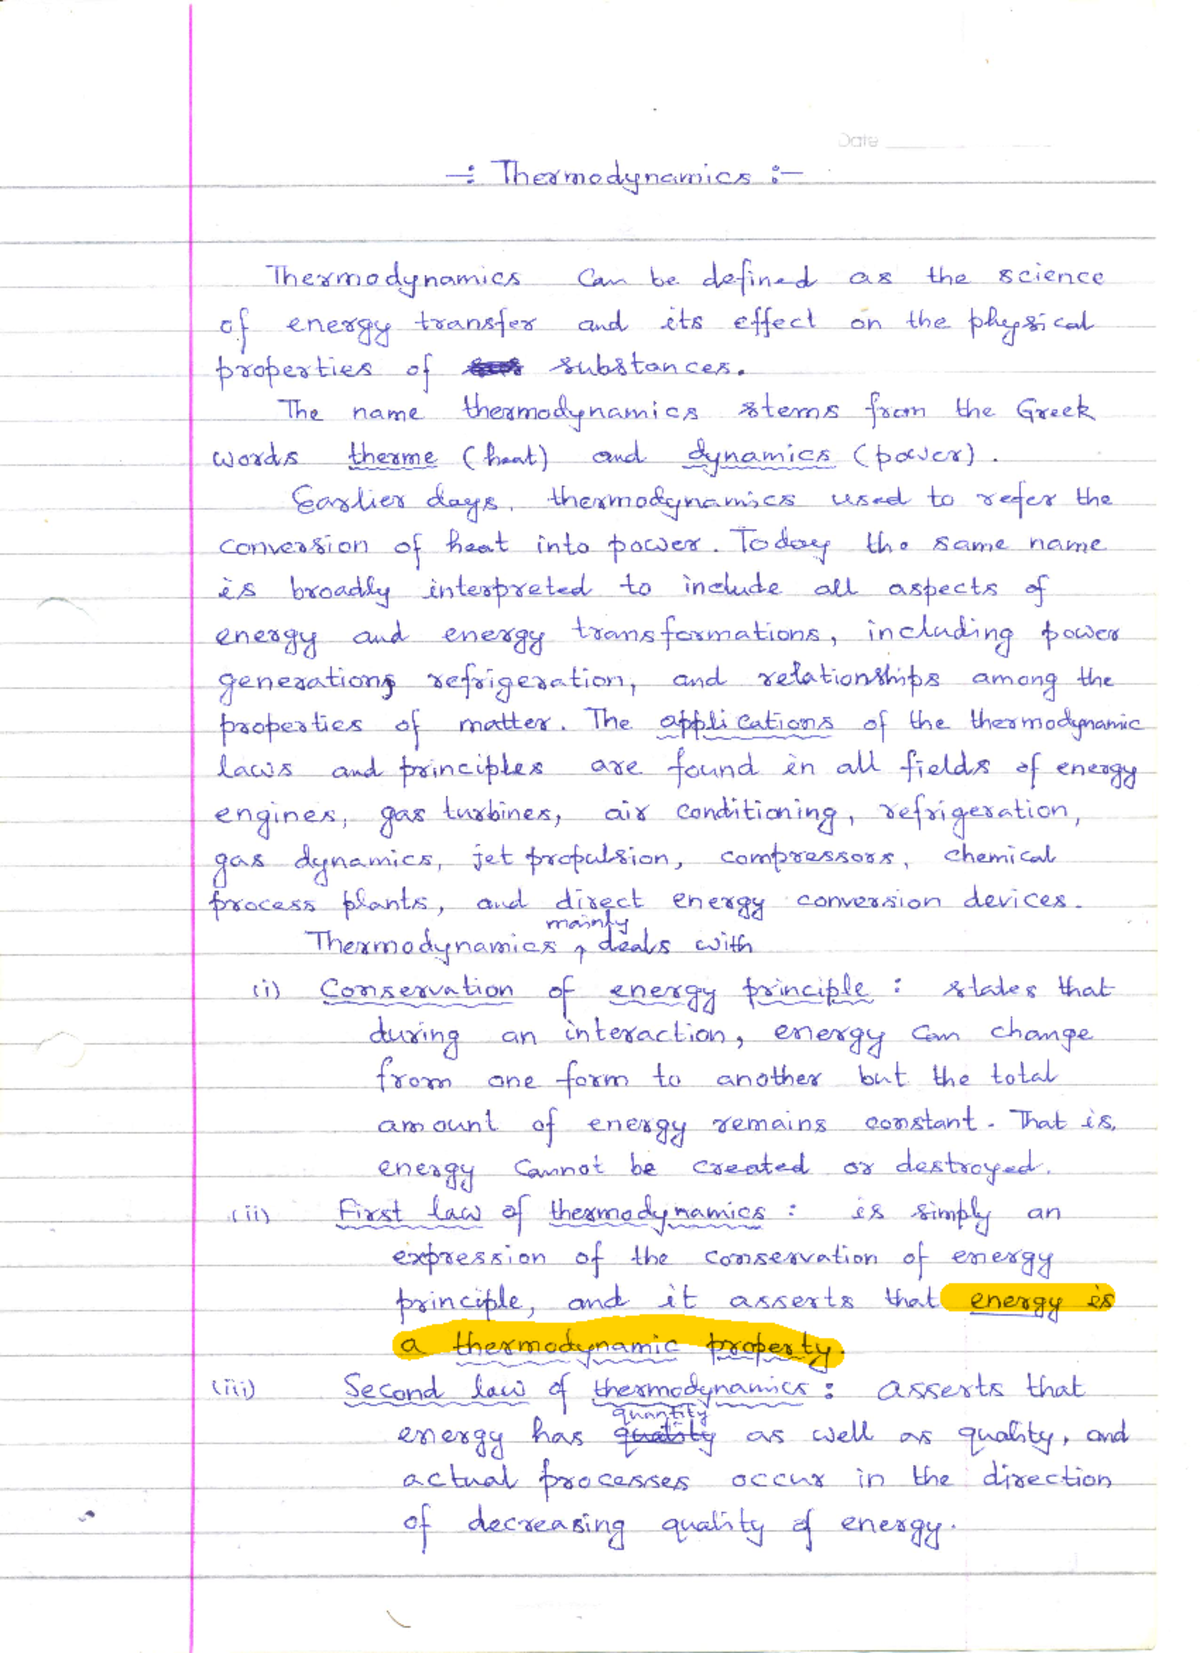 Date
-: Thermodynamics :-
Thermodynamics can be defined as the science
of energy transfer and its effect on the physical
properties of substances.
The name thermodynamics stems from the Greek
words therme (heat) and dynamics (power).
Earlier days, thermodynamics used to refer the
conversion of heat into power. Today the same name
is broadly interpreted to include all aspects of
energy and energy transformations, including power
generation, refrigeration, and relationships among the
properties of matter. The applications of the thermodynamic
laws and principles are found in all fields of energy
engines, gas turbines, air conditioning, refrigeration,
gas dynamics, jet propulsion, compressors, chemical
process plants, and direct energy conversion devices.
Thermodynamics mainly deals with
(i) Conservation of energy principle : states that
during an interaction, energy can change
from one form to another but the total
amount of energy remains constant. That is,
energy cannot be created or destroyed.
(ii) First law of thermodynamics : is simply an
expression of the conservation of energy
principle, and it asserts that energy is
a thermodynamic property.
(iii) Second law of thermodynamics : asserts that
energy has quantity as well as quality, and
actual processes occur in the direction
of decreasing quality of energy.